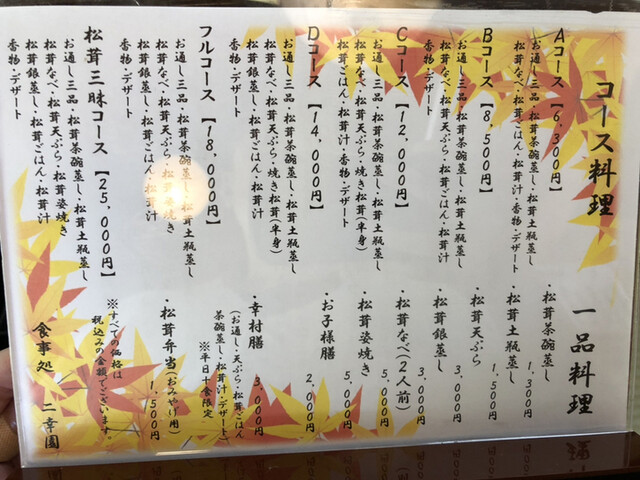 コース料理
Aコース【6,300円】
お通し三品・松茸茶碗蒸し・松茸土瓶蒸し
松茸天ぷら・松茸ごはん・松茸汁・香物・デザート
Bコース【8,500円】
お通し三品・松茸茶碗蒸し・松茸土瓶蒸し
松茸なべ・松茸天ぷら・松茸ごはん・松茸汁
香物・デザート
Cコース【12,000円】
お通し三品・松茸茶碗蒸し・松茸土瓶蒸し
松茸なべ・松茸天ぷら・焼き松茸(半身)
松茸ごはん・松茸汁・香物・デザート
Dコース【14,000円】
お通し三品・松茸茶碗蒸し・松茸土瓶蒸し
松茸なべ・松茸天ぷら・焼き松茸(半身)
松茸銀蒸し・松茸ごはん・松茸汁
香物・デザート
フルコース【18,000円】
お通し三品・松茸茶碗蒸し・松茸土瓶蒸し
松茸なべ・松茸天ぷら・松茸姿焼き
松茸銀蒸し・松茸ごはん・松茸汁
香物・デザート
松茸三昧コース【25,000円】
お通し三品・松茸茶碗蒸し・松茸土瓶蒸し
松茸なべ・松茸天ぷら・松茸姿焼き
松茸銀蒸し・松茸ごはん・松茸汁
香物・デザート
一品料理
・松茸茶碗蒸し 1,300円
・松茸土瓶蒸し 1,500円
・松茸天ぷら 3,000円
・松茸銀蒸し 3,000円
・松茸なべ(2人前) 5,000円
・松茸姿焼き 5,000円
・お子様膳 2,000円
・幸村膳 3,000円
(お通し・天ぷら・松茸ごはん
茶碗蒸し・松茸汁・デザート)
※平日十食限定
・松茸弁当(おみやげ用) 1,500円
※すべての価格は
税込みの金額でございます。
食事処 二幸園